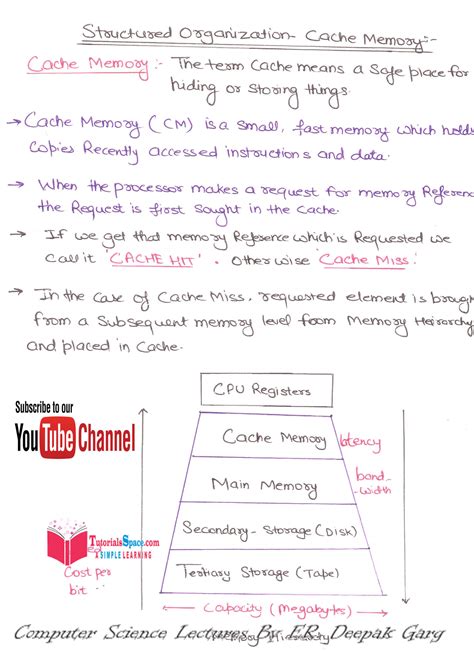 Structured Organization- Cache Memory:-
Cache Memory :- The term Cache means a safe place for
hiding or storing things.
→ Cache Memory (CM) is a small, fast memory which holds
Copies Recently accessed instructions and data.
→ When the processor makes a request for memory Reference
the Request is first Sought in the Cache.
→ If we get that memory Reference which is Requested we
call it 'CACHE HIT'. otherwise Cache Miss.
→ In the Case of Cache Miss, requested element is brough
from a Subsequent memory level from Memory Heirarchy
and placed in Cache.
CPU Registers
Subscribe to our
YouTube Channel
Cache Memory
latency
Main Memory
band-
width
Secondary - Storage (Disk)
TutorialsSpace.com
SIMPLE LEARNING
Cost per
bit
Tertiary Storage (Tape)
Capacity (Megabytes)
Computer Science Lectures By ER. Deepak Garg